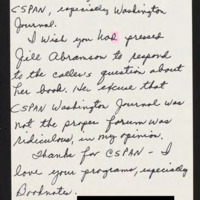 CSPAN, especially Washington
Journal.
I wish you had pressed
Jill Abramson to respond
to the caller's question about
her book. Her excuse that
CSPAN Washington Journal was
not the proper forum was
ridiculous, in my opinion.
Thanks for CSPAN - I
love your programs, especially
Booknotes.